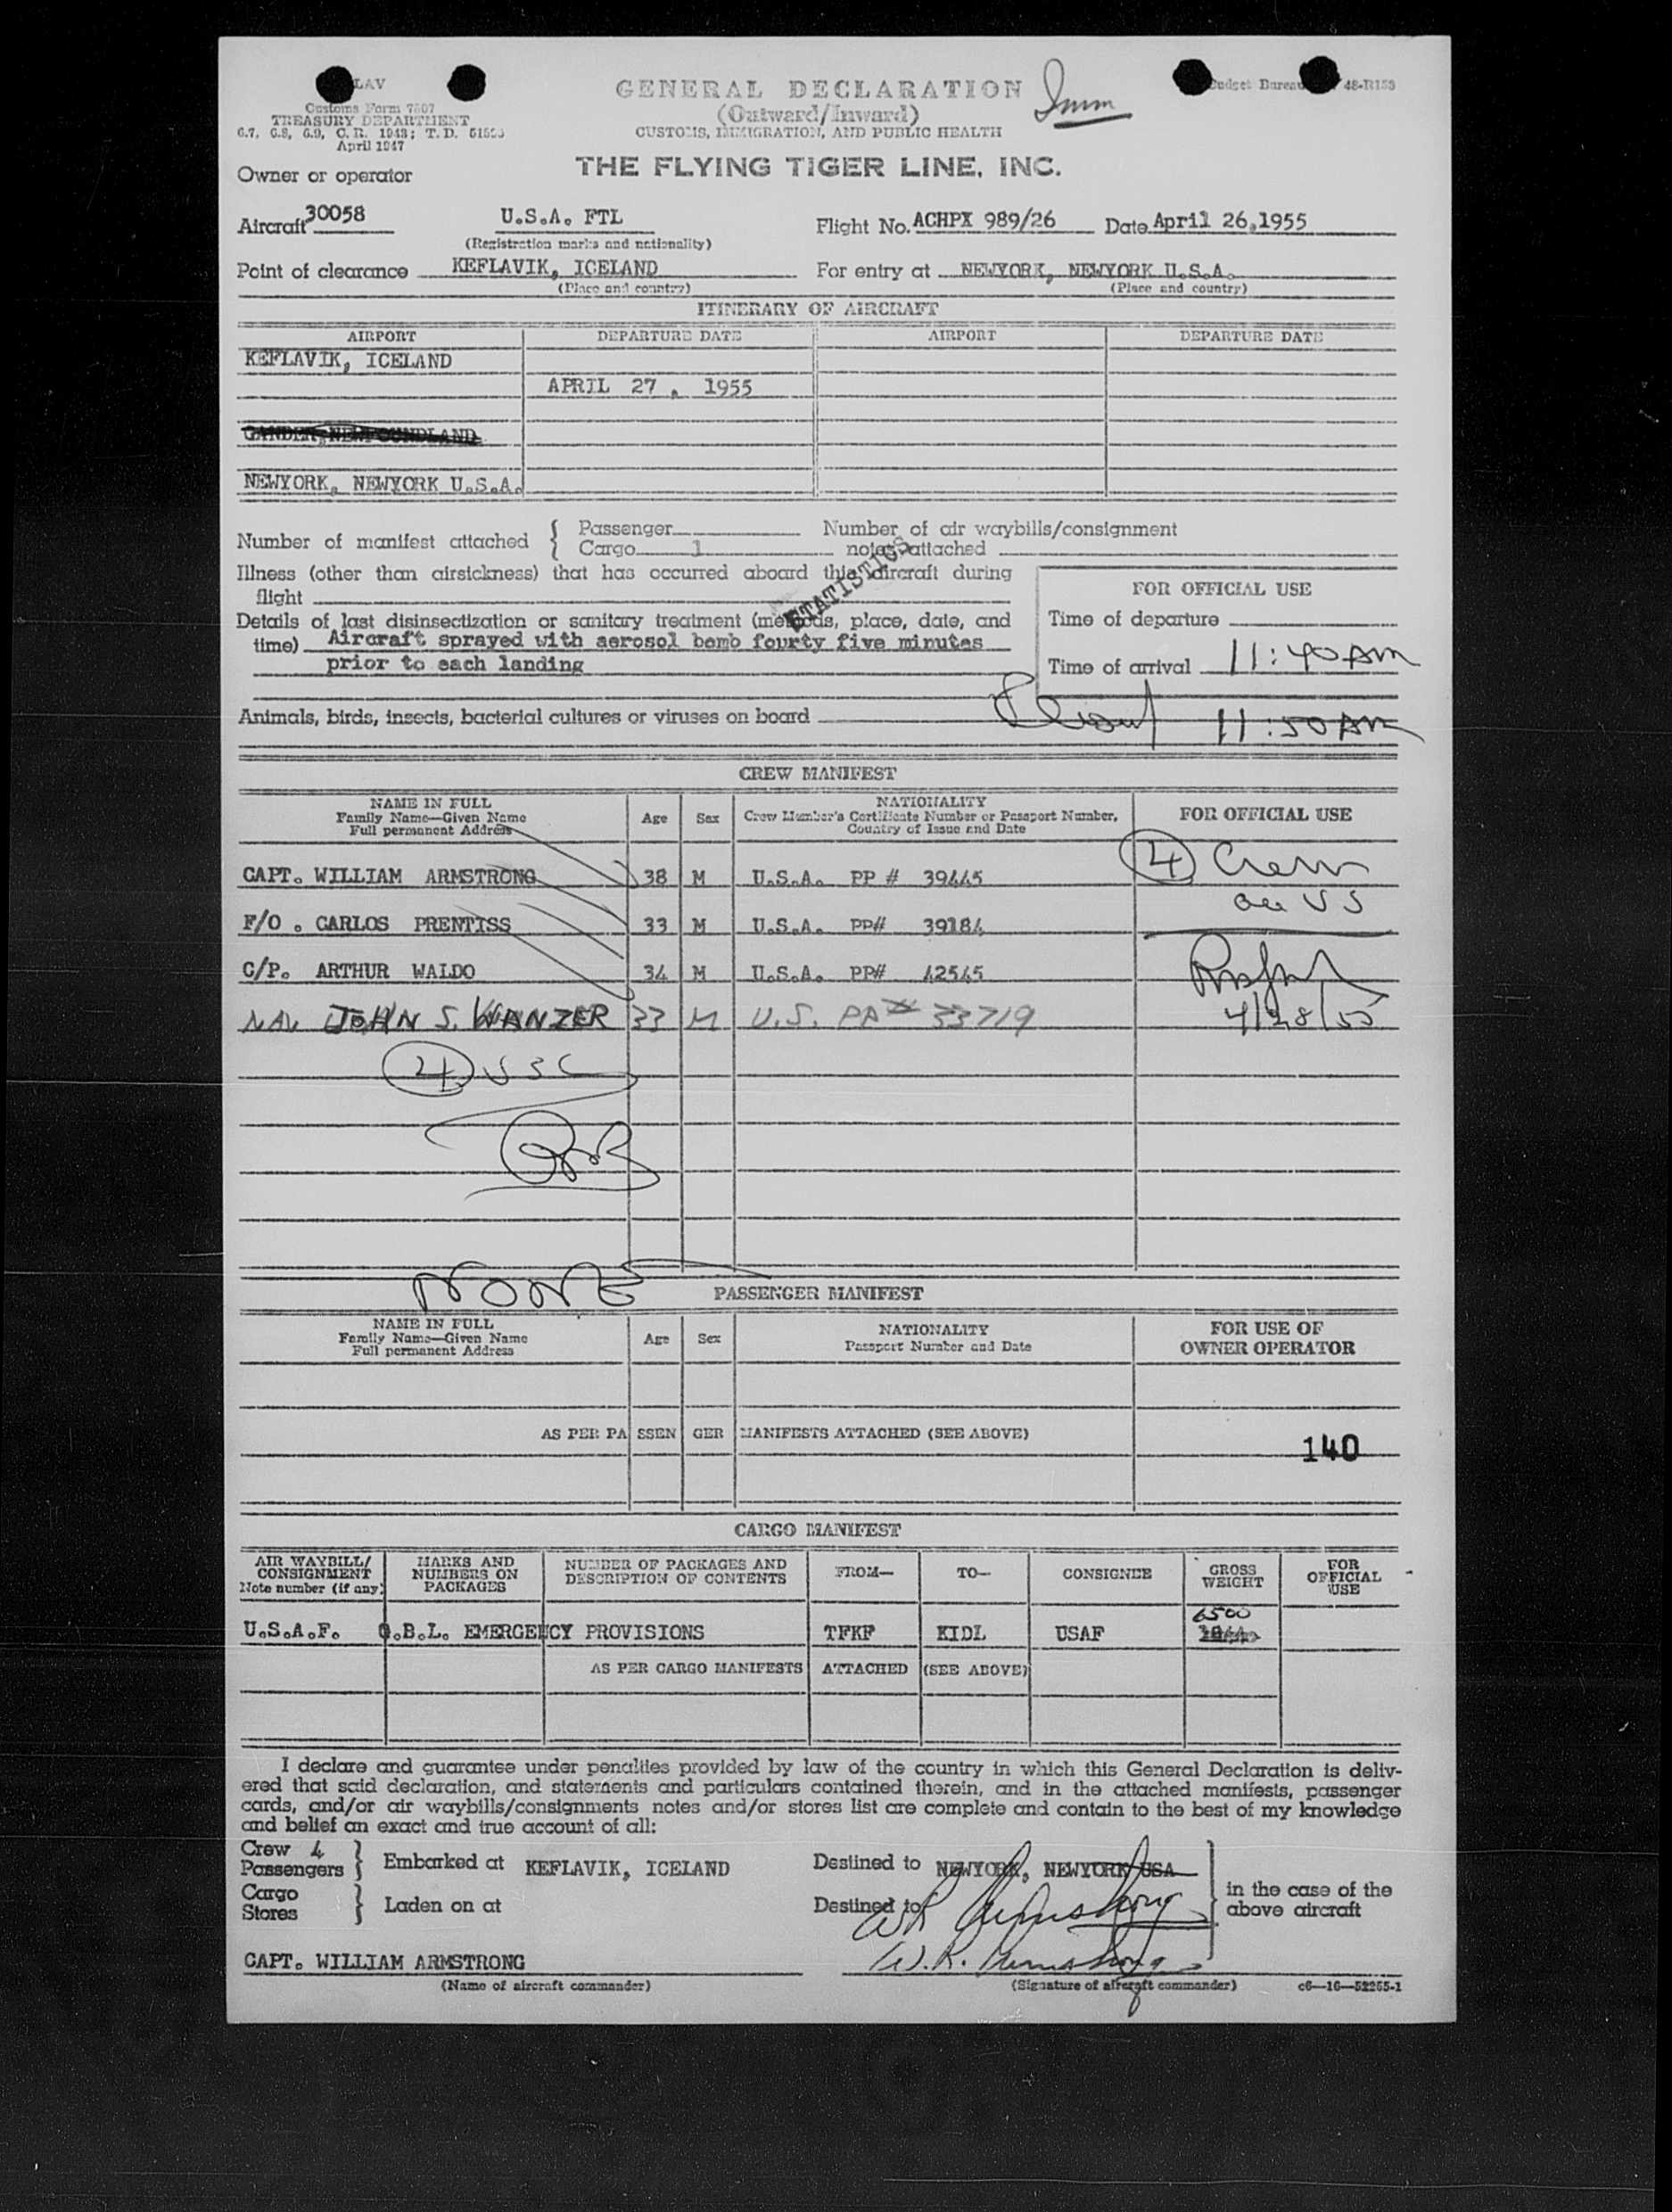 LAV
Customs Form 7507
TREASURY DEPARTMENT
6.7, 6.8, 6.9, C. R. 1943; T. D.
April 1947
GENERAL DECLARATION
(Outward/Inward)
CUSTOMS, IMMIGRATION, AND PUBLIC HEALTH
Imm
Budget Bureau 48-R153
THE FLYING TIGER LINE, INC.
Owner or operator
Aircraft 30058 U.S.A. FTL Flight No. ACHPX 989/26 Date April 26,1955
(Registration marks and nationality)
Point of clearance KEFLAVIK, ICELAND For entry at NEWYORK, NEWYORK U.S.A.
(Place and country) (Place and country)
ITINERARY OF AIRCRAFT
AIRPORT DEPARTURE DATE AIRPORT DEPARTURE DATE
KEFLAVIK, ICELAND
APRIL 27 , 1955
GANDER, NEWFOUNDLAND
NEWYORK, NEWYORK U.S.A.
Number of manifest attached { Passenger
Cargo 1
Number of air waybills/consignment
notes attached
STATISTICS
Illness (other than airsickness) that has occurred aboard this aircraft during
flight
Details of last disinsectization or sanitary treatment (methods, place, date, and
time) Aircraft sprayed with aerosol bomb fourty five minutes
prior to each landing
FOR OFFICIAL USE
Time of departure
Time of arrival 11:40 AM
Animals, birds, insects, bacterial cultures or viruses on board
11:50 AM
CREW MANIFEST
NAME IN FULL
Family Name—Given Name
Full permanent Address
Age Sex
NATIONALITY
Crew Member's Certificate Number or Passport Number,
Country of Issue and Date
FOR OFFICIAL USE
CAPT. WILLIAM ARMSTRONG 38 M U.S.A. PP # 39445
F/O . CARLOS PRENTISS 33 M U.S.A. PP# 39184
C/P. ARTHUR WALDO 34 M U.S.A. PP# 42545
NAV JOHN S. WANZER 33 M U.S. PP# 33719
4 Crew
all US
4/28/55
4 USC
NONE
PASSENGER MANIFEST
NAME IN FULL
Family Name—Given Name
Full permanent Address
Age Sex
NATIONALITY
Passport Number and Date
FOR USE OF
OWNER OPERATOR
AS PER PASSENGER MANIFESTS ATTACHED (SEE ABOVE)
140
CARGO MANIFEST
AIR WAYBILL/
CONSIGNMENT
Note number (if any)
MARKS AND
NUMBERS ON
PACKAGES
NUMBER OF PACKAGES AND
DESCRIPTION OF CONTENTS
FROM— TO— CONSIGNEE
GROSS
WEIGHT
FOR
OFFICIAL
USE
6500
U.S.A.F. G.B.L. EMERGENCY PROVISIONS TFKF KIDL USAF
AS PER CARGO MANIFESTS ATTACHED (SEE ABOVE)
I declare and guarantee under penalties provided by law of the country in which this General Declaration is deliv-
ered that said declaration, and statements and particulars contained therein, and in the attached manifests, passenger
cards, and/or air waybills/consignments notes and/or stores list are complete and contain to the best of my knowledge
and belief an exact and true account of all:
Crew 4
Passengers } Embarked at KEFLAVIK, ICELAND Destined to NEWYORK, NEWYORK USA
Cargo
Stores } Laden on at Destined to
in the case of the
above aircraft
W R Armstrong
CAPT. WILLIAM ARMSTRONG W. R. Armstrong
(Name of aircraft commander) (Signature of aircraft commander) c6—16—52255-1